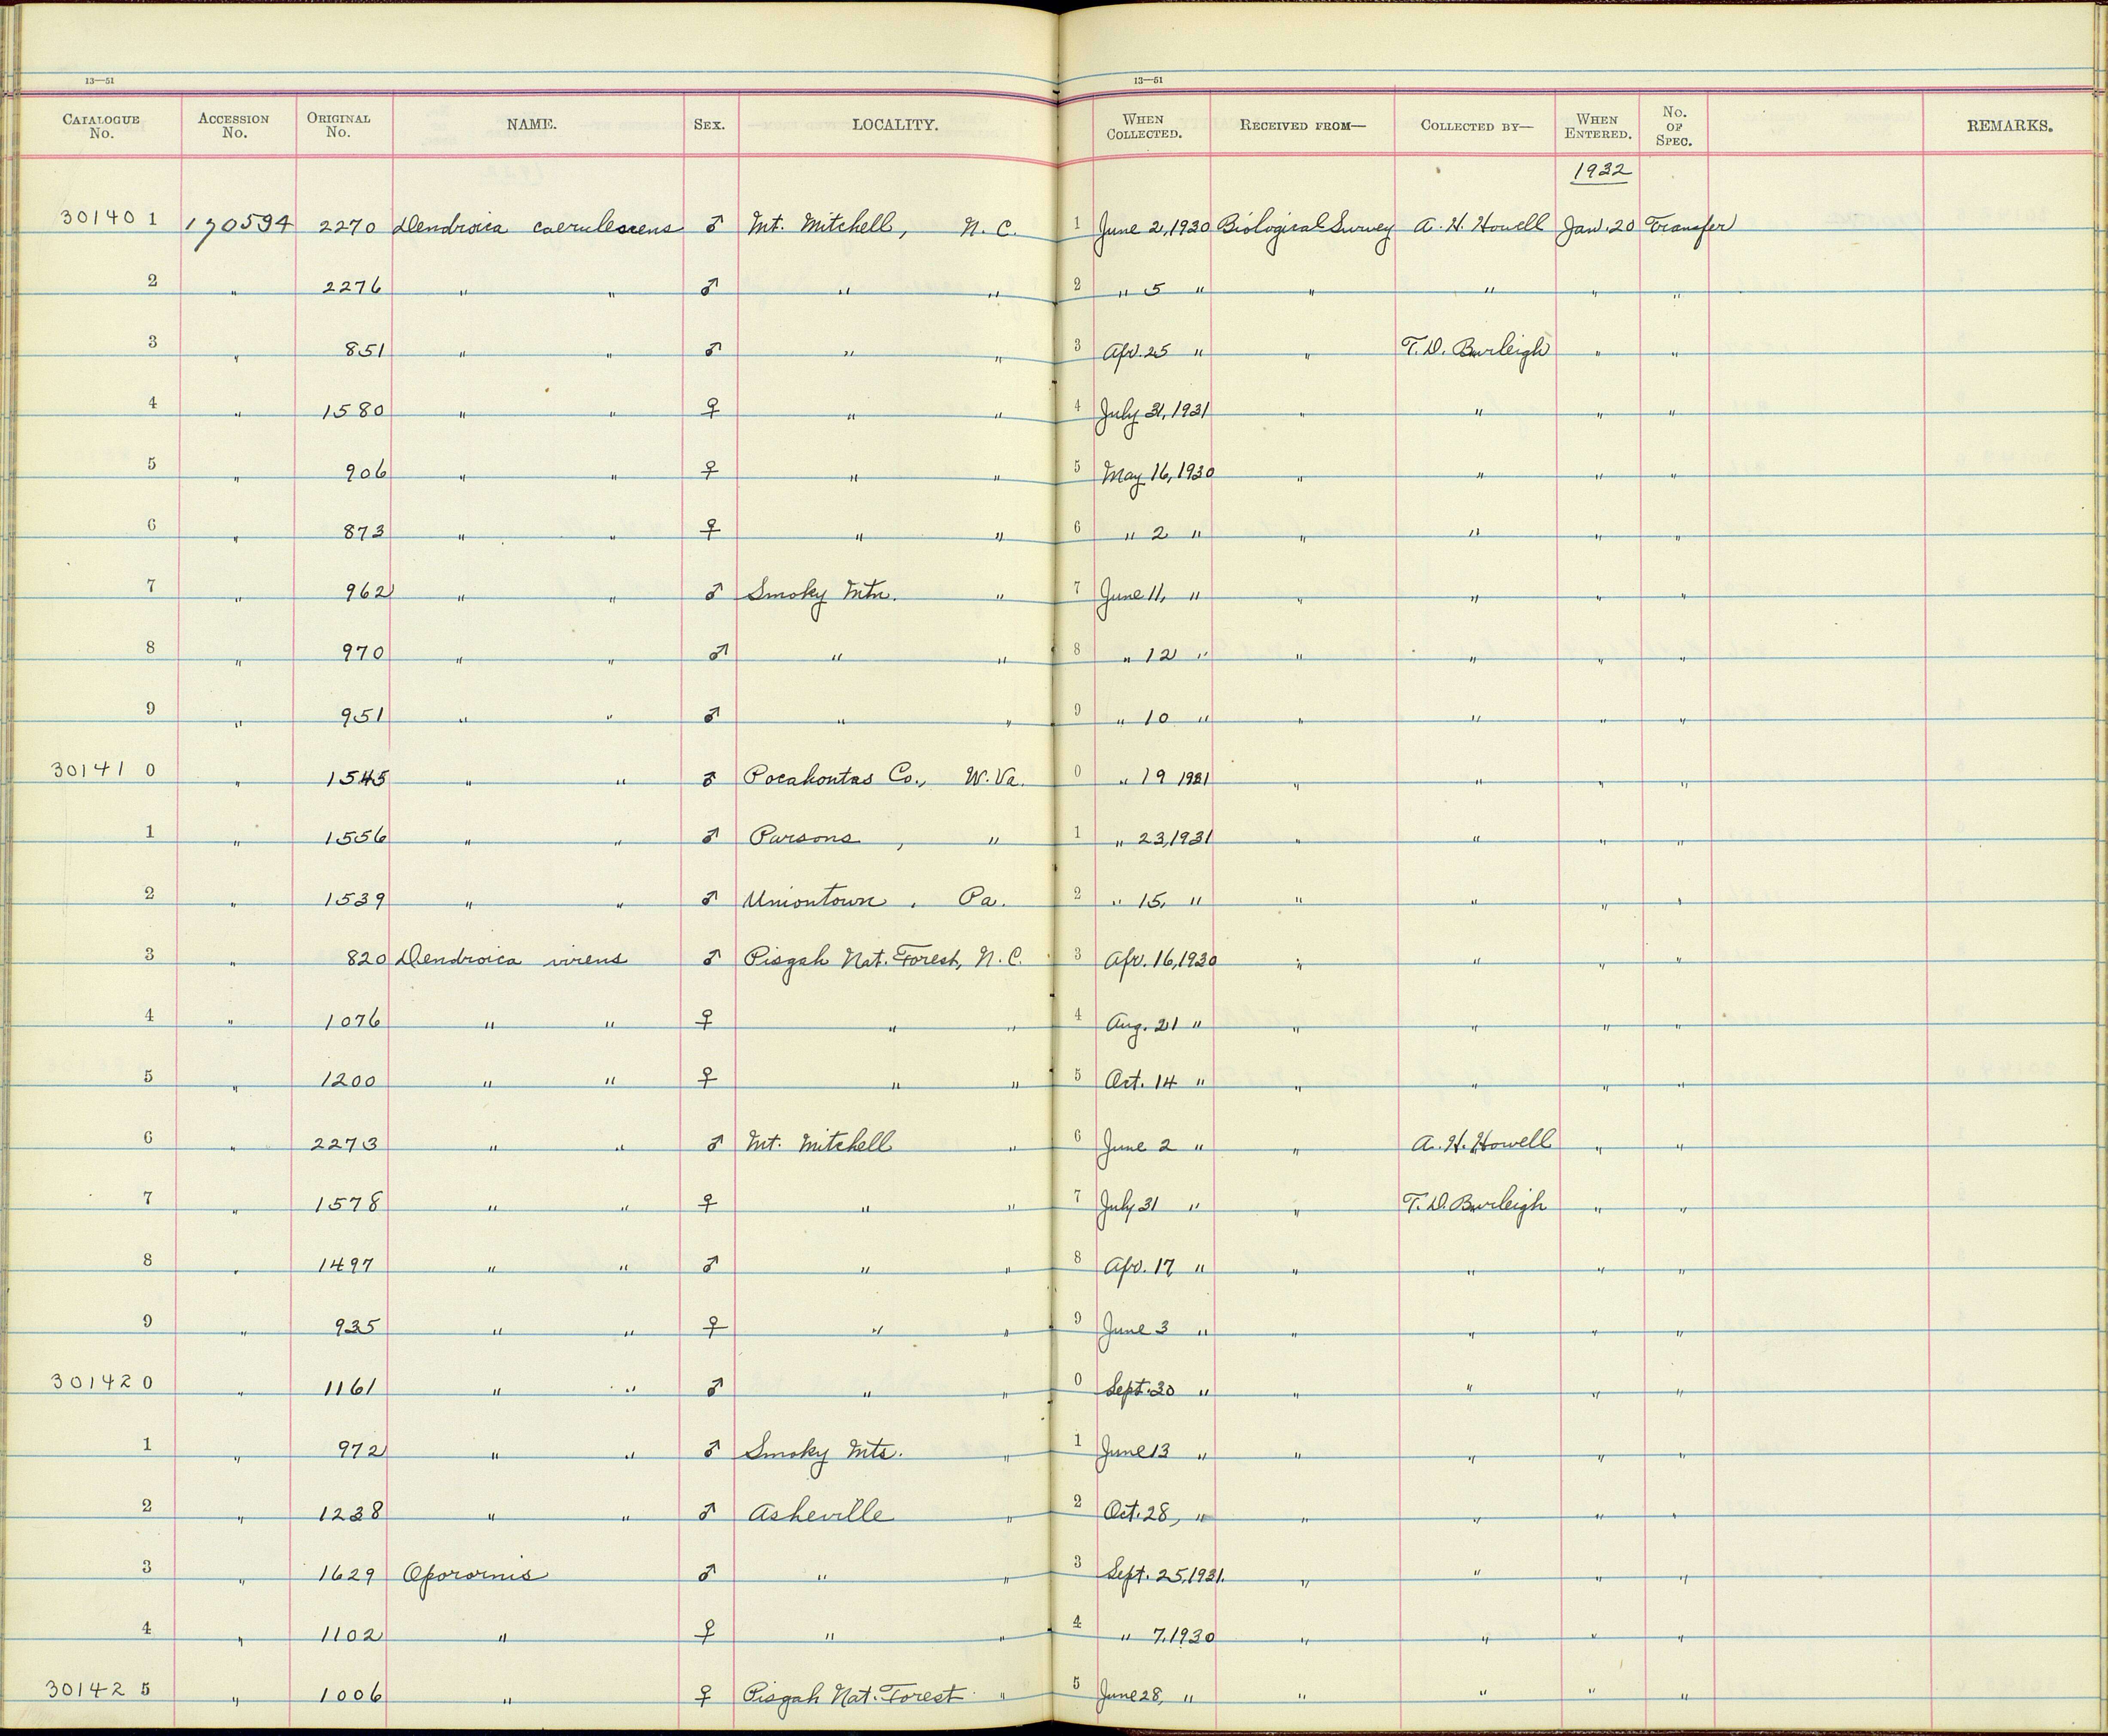 13—51 13—51
CATALOGUE No. ACCESSION No. ORIGINAL No. NAME. SEX. LOCALITY. WHEN COLLECTED. RECEIVED FROM— COLLECTED BY— WHEN ENTERED. No. OF SPEC. REMARKS.
1932
301401 170594 2270 Dendroica caerulescens ♂ Mt. Mitchell, N.C. 1 June 2, 1930 Biological Survey A. H. Howell Jan. 20 Transfer
2 " 2276 " " ♂ " " 2 " 5 " " " " "
3 " 851 " " ♂ " " 3 Apr. 25 " " T. D. Burleigh " "
4 " 1580 " " ♀ " " 4 July 31, 1931 " " " "
5 " 906 " " ♀ " " 5 May 16, 1930 " " " "
6 " 873 " " ♀ " " 6 " 2 " " " " "
7 " 962 " " ♂ Smoky Mtn. " 7 June 11, " " " " "
8 " 970 " " ♂ " " 8 " 12 " " " " "
9 " 951 " " ♂ " " 9 " 10 " " " " "
301410 " 1545 " " ♂ Pocahontas Co., W. Va. 0 " 19 1931 " " " "
1 " 1556 " " ♂ Parsons, " 1 " 23, 1931 " " " "
2 " 1539 " " ♂ Uniontown, Pa. 2 " 15, " " " " "
3 " 820 Dendroica virens ♂ Pisgah Nat. Forest, N.C. 3 Apr. 16, 1930 " " " "
4 " 1076 " " ♀ " " 4 Aug. 21 " " " " "
5 " 1200 " " ♀ " " 5 Oct. 14 " " " " "
6 " 2273 " " ♂ Mt. Mitchell " 6 June 2 " " A. H. Howell " "
7 " 1578 " " ♀ " " 7 July 31 " " T. D. Burleigh " "
8 " 1497 " " ♂ " " 8 Apr. 17 " " " " "
9 " 935 " " ♀ " " 9 June 3 " " " " "
301420 " 1161 " " ♂ " " 0 Sept. 30 " " " " "
1 " 972 " " ♂ Smoky Mts. " 1 June 13 " " " " "
2 " 1238 " " ♂ Asheville " 2 Oct. 28, " " " " "
3 " 1629 Oporornis ♂ " " 3 Sept. 25, 1931. " " " "
4 " 1102 " ♀ " " 4 " 7, 1930 " " " "
301425 " 1006 " ♀ Pisgah Nat. Forest " 5 June 28, " " " " "